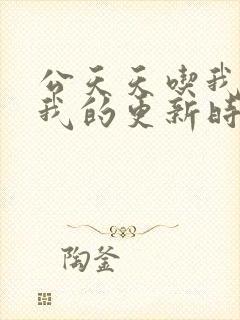 公天天喫我
我的更新時
陶釜